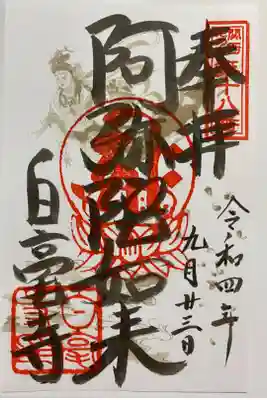 奉拝
阿弥陀如来
令和四年
九月廿三日
白毫寺